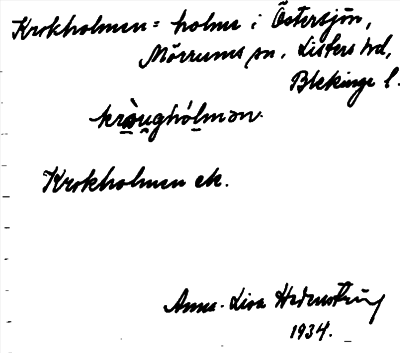 Krokholmen = holme i Östersjön,
Mörrums sn. Listers hd,
Blekinge l.
kròu̯ghólmən.
Krokholmen ek.
Anna-Lisa
1934.